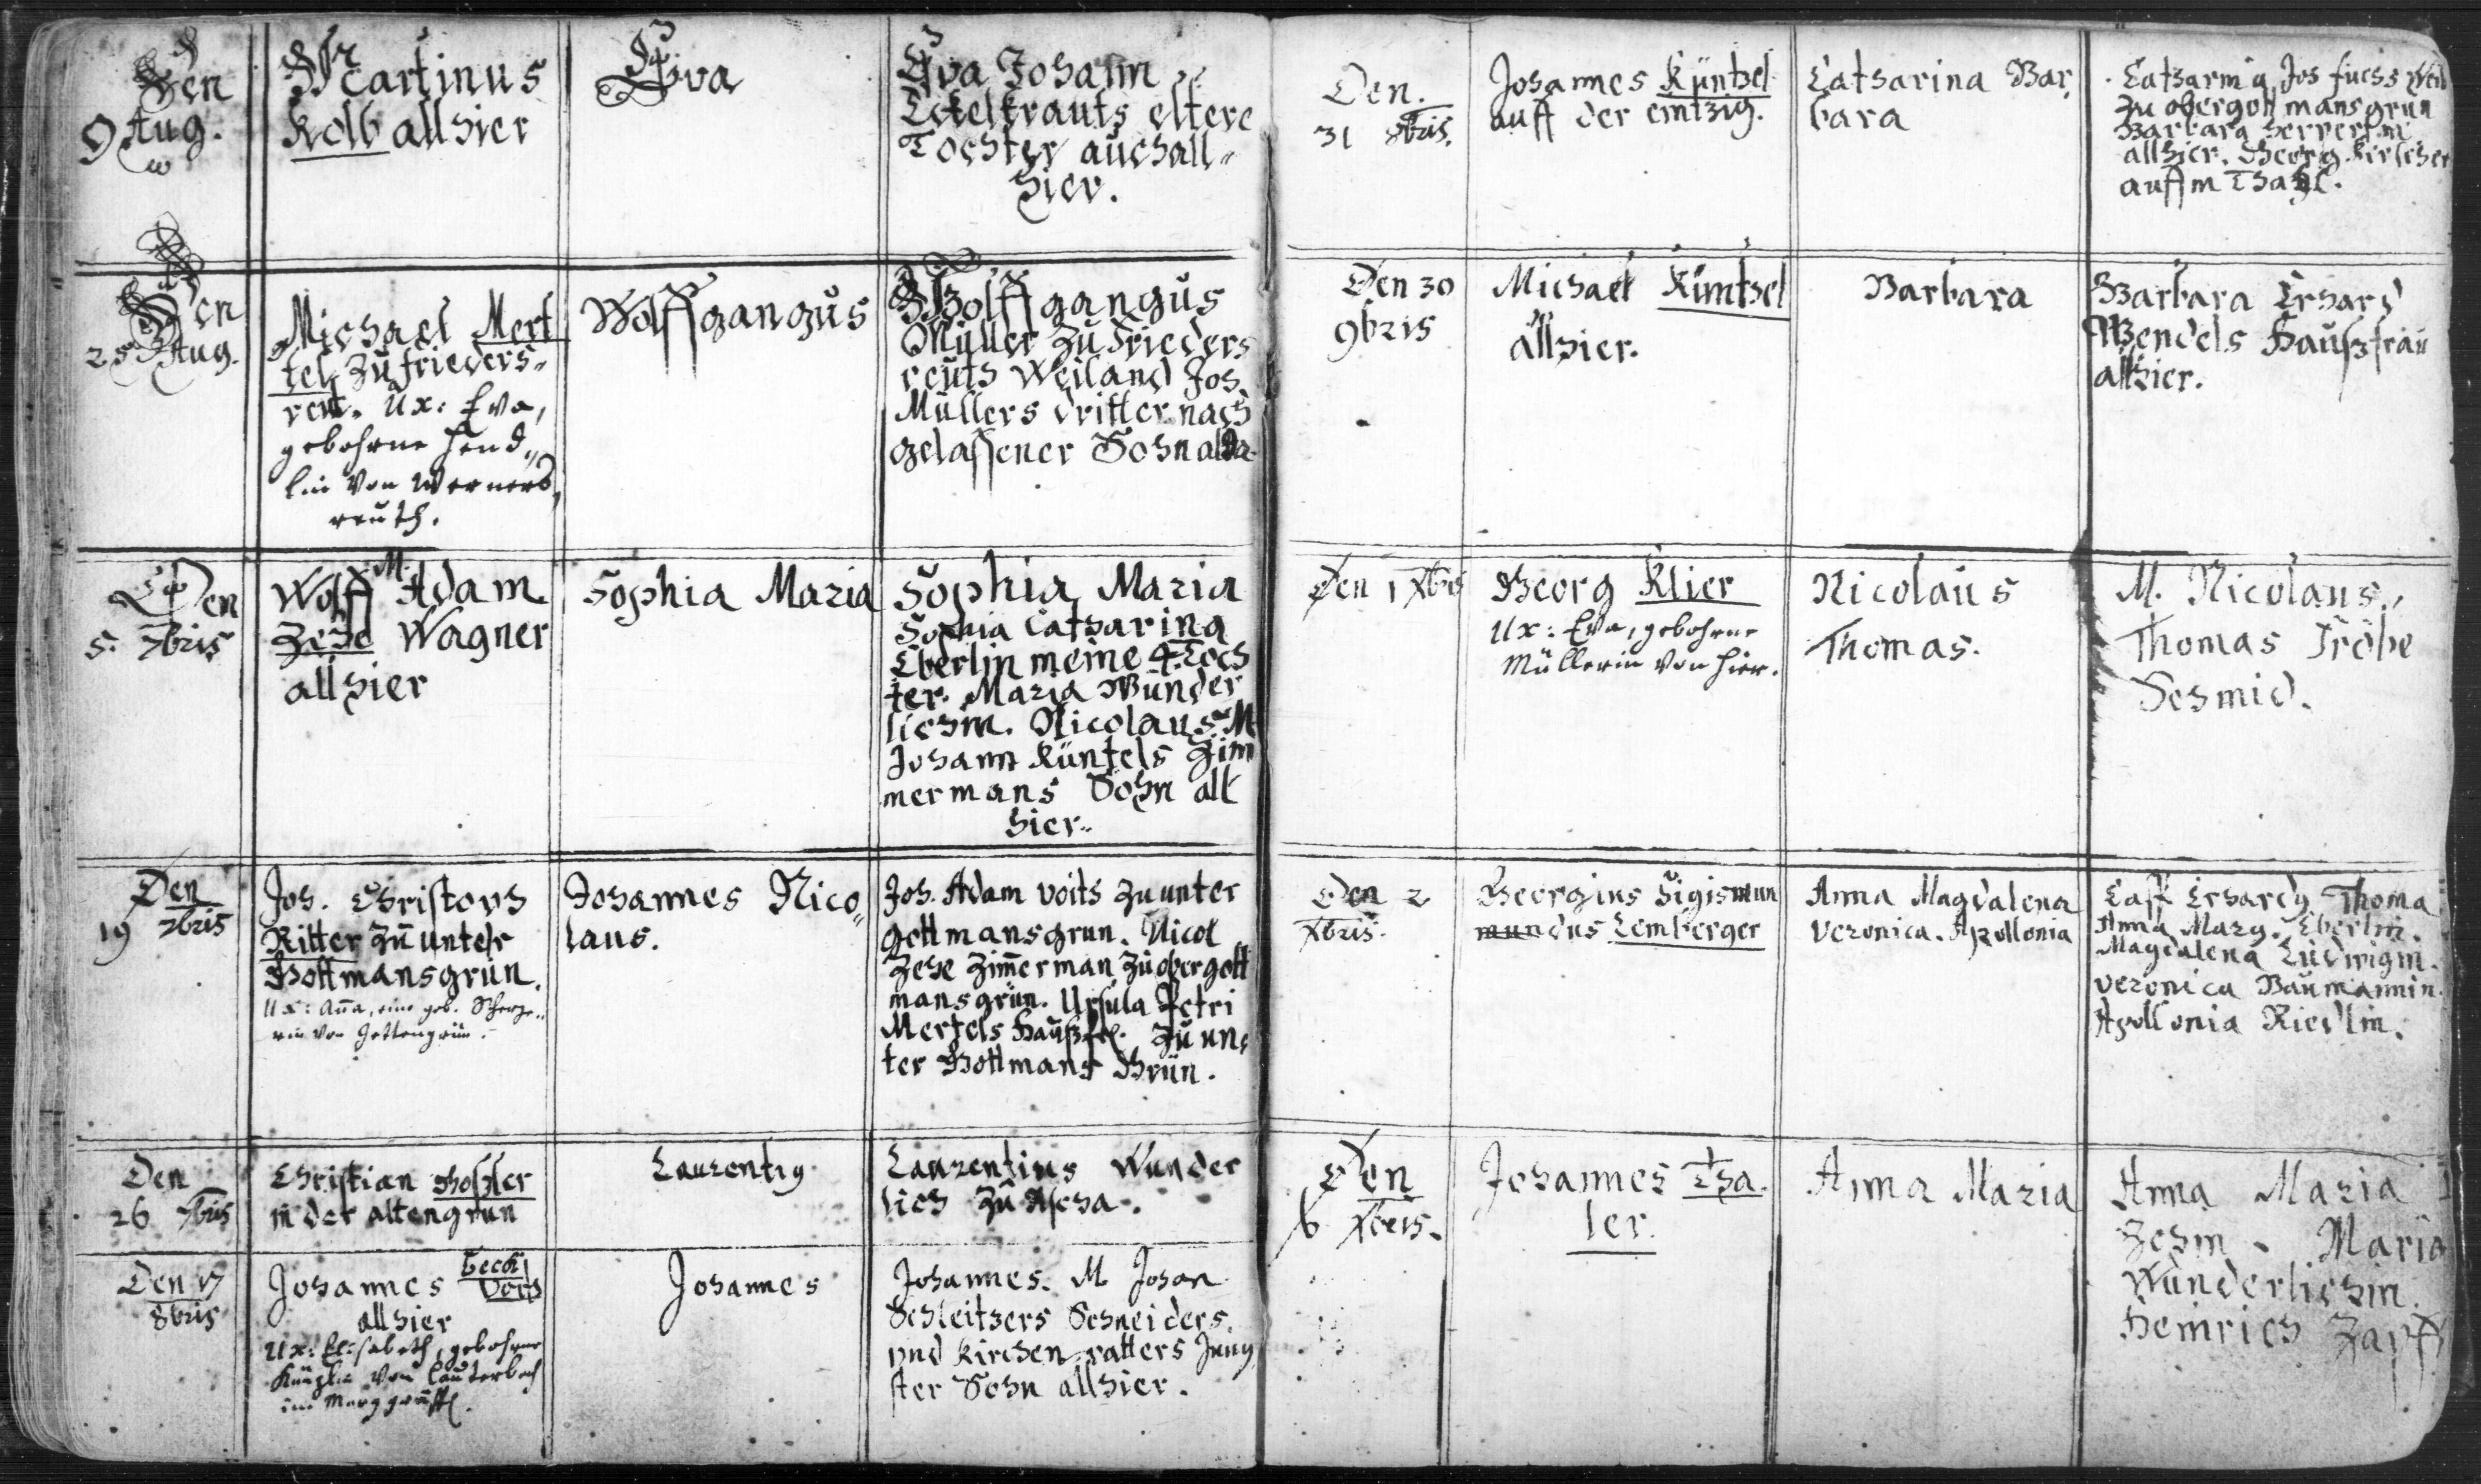 Den
9 Aug.
Martinus
Kolb allhier
Eva
Eva Johann
Eckelkrauts eltere
Tochter auch all-
hier.
Den
25 Aug.
Michael Mert
tel zu frieders-
reut. Ux: Eva,
gebohrne Hend„
lin von Werners,
reuth.
Wolffgangus
Wolffgangus
Müller zu Frieders
reuth Weiland Joh.
Müllers dritter nach
gelassener Sohn alda
Den
5. 7bris
M.
Wolff Adam
Zehe Wagner
allhier
Sophia Maria
Sophia Maria
Sophia Catharina
Eberlin meine 4. Toch
ter. Maria Wunder
lichin. Nicolaus M.
Johann Küntels Zim
mermans Sohn all
hier.
Den
19 7bris
Joh. Christoph
Ritter zu unter
Gottmansgrün.
Ux: Aña, eine geb.
rin von Gettengrün.
Johannes Nico„
laus.
Joh. Adam Voits zu unter
gottmansgrun. Nicol
Zehe Zimerman zu obergott
mansgrün. Ursula Petri
Mertels Haußfr. zu un,
ter Gottmans Grün.
Den
26 7bris
Christian
in der altengrun
Laurentiy
Laurentius Wunder
lich zu Ascha.
Den 17
8bris
Johannes
allhier
Ux: Elisabeth, gebohrne
Künzlin von Lauterbach
im
Johannes
Johannes. M. Johan
Schleitzers Schneiders
vnd Kirchenvatters Jung
ster Sohn allhier.
Den.
31 8bris.
Johannes Küntzel
auff der emtzig.
Catharina Bar,
bara
Catharina Joh fuchs Weib
zu obergottmansgrün
Barbara
allhier. Georg Kirscher
auffm Thahl.
Den 30
9bris
Michael Küntzel
allhier.
Barbara
Barbara Erhard
Wendels Haußfrau
allhier.
Den 1 Xbris
Georg Klier
Ux: Eva, gebohrne
Müllerin von hier.
Nicolaus
Thomas.
M. Nicolaus
Thomas Fröbe
Schmid.
Den 2
Xbris.
Georgius Sigismun
mundus Lemberger
Anna Magdalena
Veronica. Apollonia
Erhardy Thoma
Anna Marg. Eberlin.
Magdalena Ludwigin.
Veronica Baumannin.
Apollonia Riedlin.
Den
6 Xbris.
Johannes Tha
ler
Anna Maria
Anna Maria
Zehin. Maria
Wunderlichin.
Heinrich Zapff